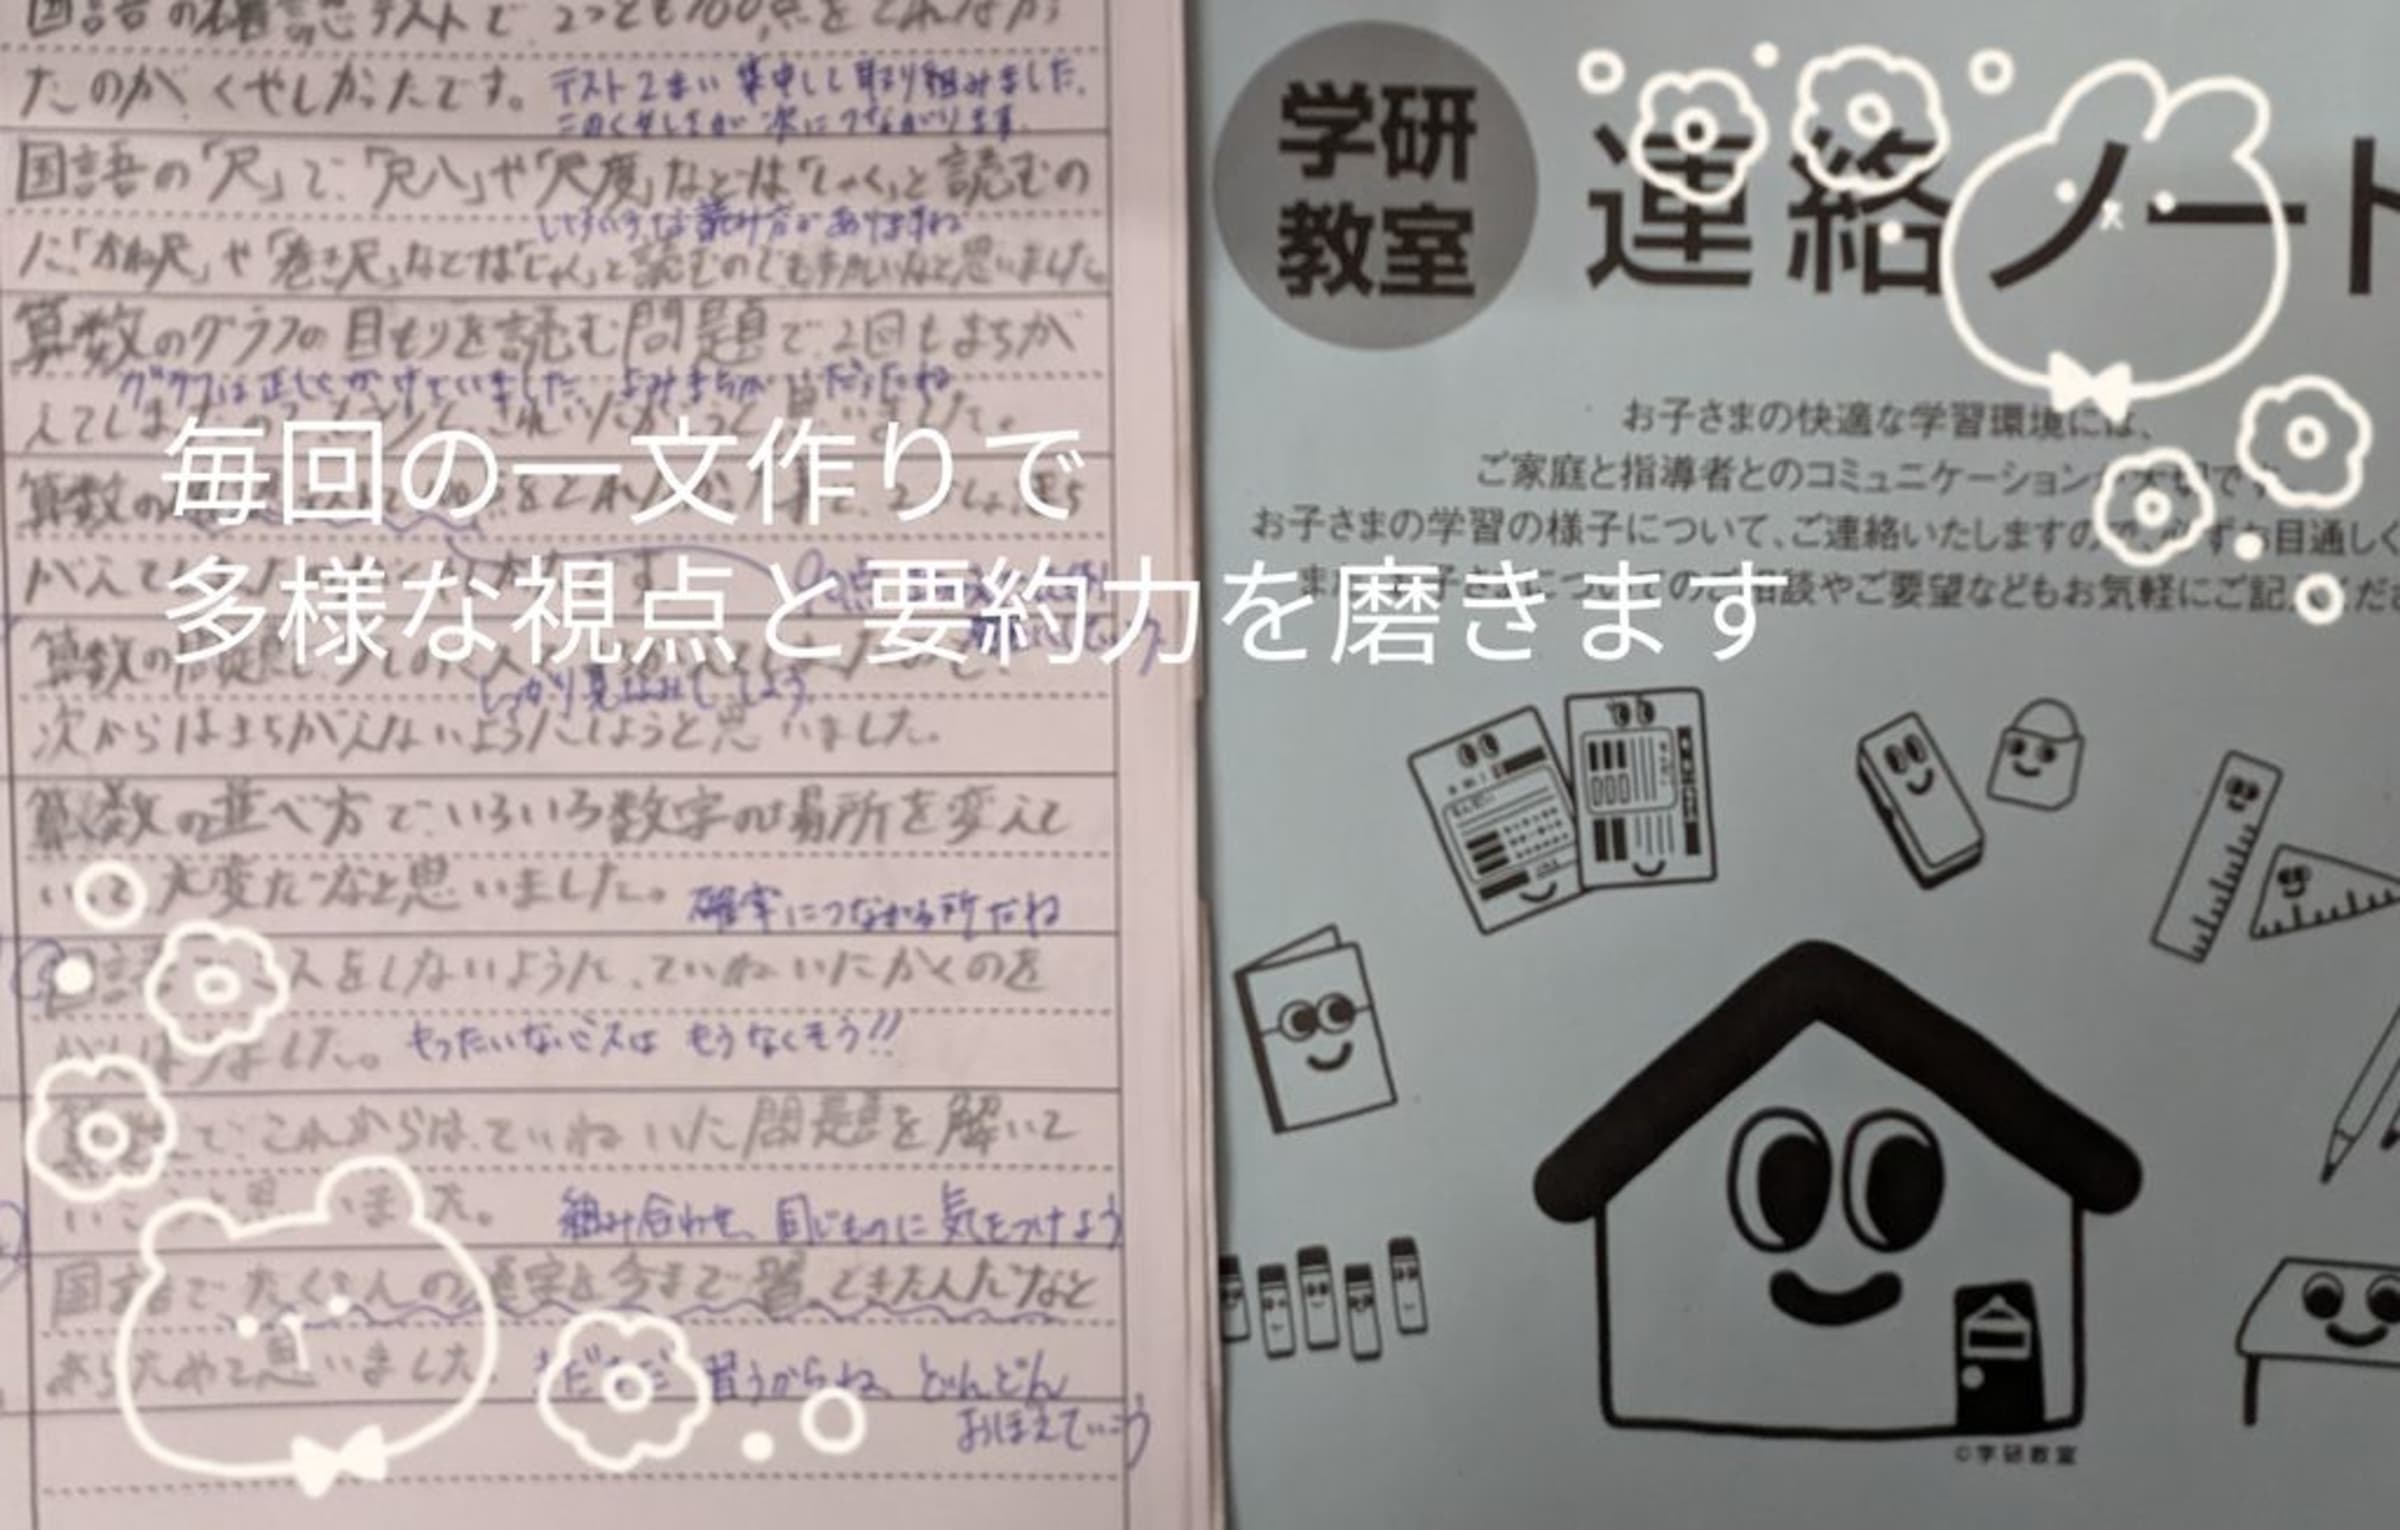 国語の確認テストで2つとも100点をとれなかっ
たのが、くやしかったです。
テスト2まい集中して取り組みました。
このくやしさが次につながります。
国語の「尺」で、「尺八」や「尺度」などは「しゃく」と読むの
いろいろな読み方がありますね
に「かね尺」や「巻き尺」などは「じゃく」と読むの
思いました
算数のグラフの目もりを読む問題で、2回もまちが
グラフは正しくかけていました。よみまちがい だったね
えてしま
算数の
が
毎回の一文作りで
多様な視点と要約力を磨きます
算数の
しっかり見
しよう
次からはまちがえないようにしようと思いました。
算数の並べ方で、いろいろ数字の場所を変えて
いて大変だなと思いました。
確率につながる所だね
国語
ミスをしないように、ていねいにかくのを
がんばりました。
もったいないミスは もうなくそう!!
算数で、これからは、ていねいに問題を解いて
いこうと思いました。
組み合わせ、同じものに気をつけよう
国語で、たくさんの漢字を今まで習ってきたんだなと
あらためて思いました。
まだまだ習うからね、どんどん
おぼえていこう
学研
教室
連絡ノート
お子さまの快適な学習環境には、
ご家庭と指導者とのコミュニケーションが大切です。
お子さまの学習の様子について、ご連絡いたしますので、必ずお目通しく
また、お子さまについてのご相談やご要望などもお気軽にご記入くださ
©学研教室